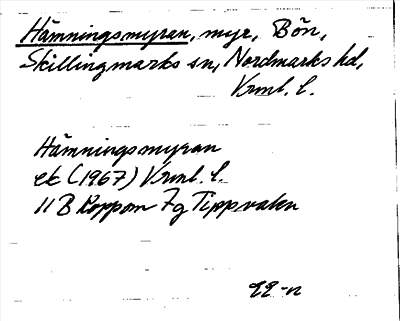 Hämningsmyran, myr, Bön,
Skillingmarks sn, Nordmarks hd,
Vrml. l.
Hämningsmyran
ek (1967) Vrml. l.
11 B Koppom 7g Tippvalen